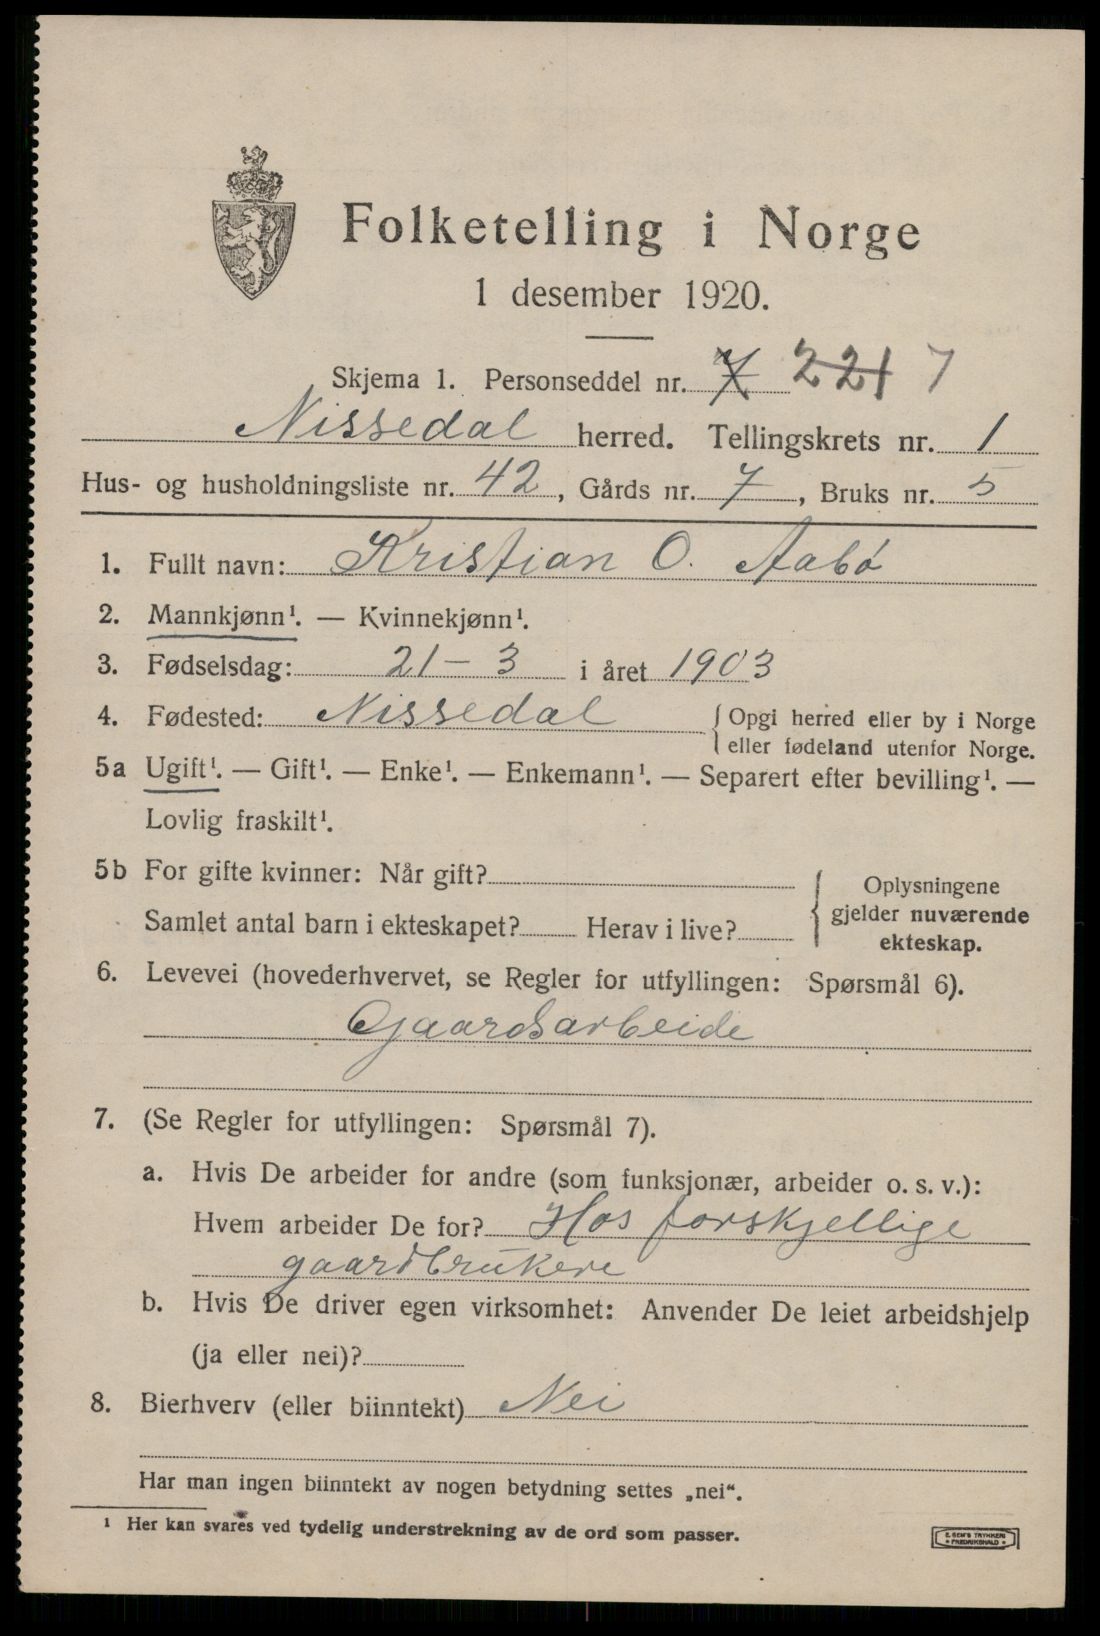 Folketelling i Norge
1 desember 1920.
Skjema 1. Personseddel nr. 7 221 7
Nissedal herred. Tellingskrets nr. 1
Hus- og husholdningsliste nr. 42, Gårds nr. 7, Bruks nr. 5
1. Fullt navn: Kristian O. Aabø
2. Mannkjønn¹. — Kvinnekjønn¹.
3. Fødselsdag: 21-3 i året 1903
4. Fødested: Nissedal { Opgi herred eller by i Norge
eller fødeland utenfor Norge.
5a Ugift¹. — Gift¹. — Enke¹. — Enkemann¹. — Separert efter bevilling¹. —
Lovlig fraskilt¹.
5b For gifte kvinner: Når gift?
Samlet antal barn i ekteskapet? Herav i live?
Oplysningene
gjelder nuværende
ekteskap.
6. Levevei (hovederhvervet, se Regler for utfyllingen: Spørsmål 6).
Gaardsarbeide
7. (Se Regler for utfyllingen: Spørsmål 7).
a. Hvis De arbeider for andre (som funksjonær, arbeider o. s. v.):
Hvem arbeider De for? Hos forskjellige
gaardbrukere
b. Hvis De driver egen virksomhet: Anvender De leiet arbeidshjelp
(ja eller nei)?
8. Bierhverv (eller biinntekt) Nei
Har man ingen biinntekt av nogen betydning settes „nei“.
¹ Her kan svares ved tydelig understrekning av de ord som passer.
E. SEM'S TRYKKERI
FREDRIKSHALD